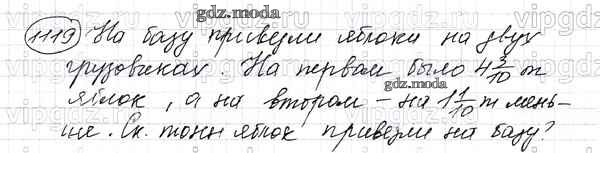 gdz.moza
1119 На базу привезли яблоки на двух
грузовиках. На первом было 4 3/10 т
gdz.moza
яблок, а на втором – на 1 1/10 т мень-
ше. Ск. тонн яблок привезли на базу?